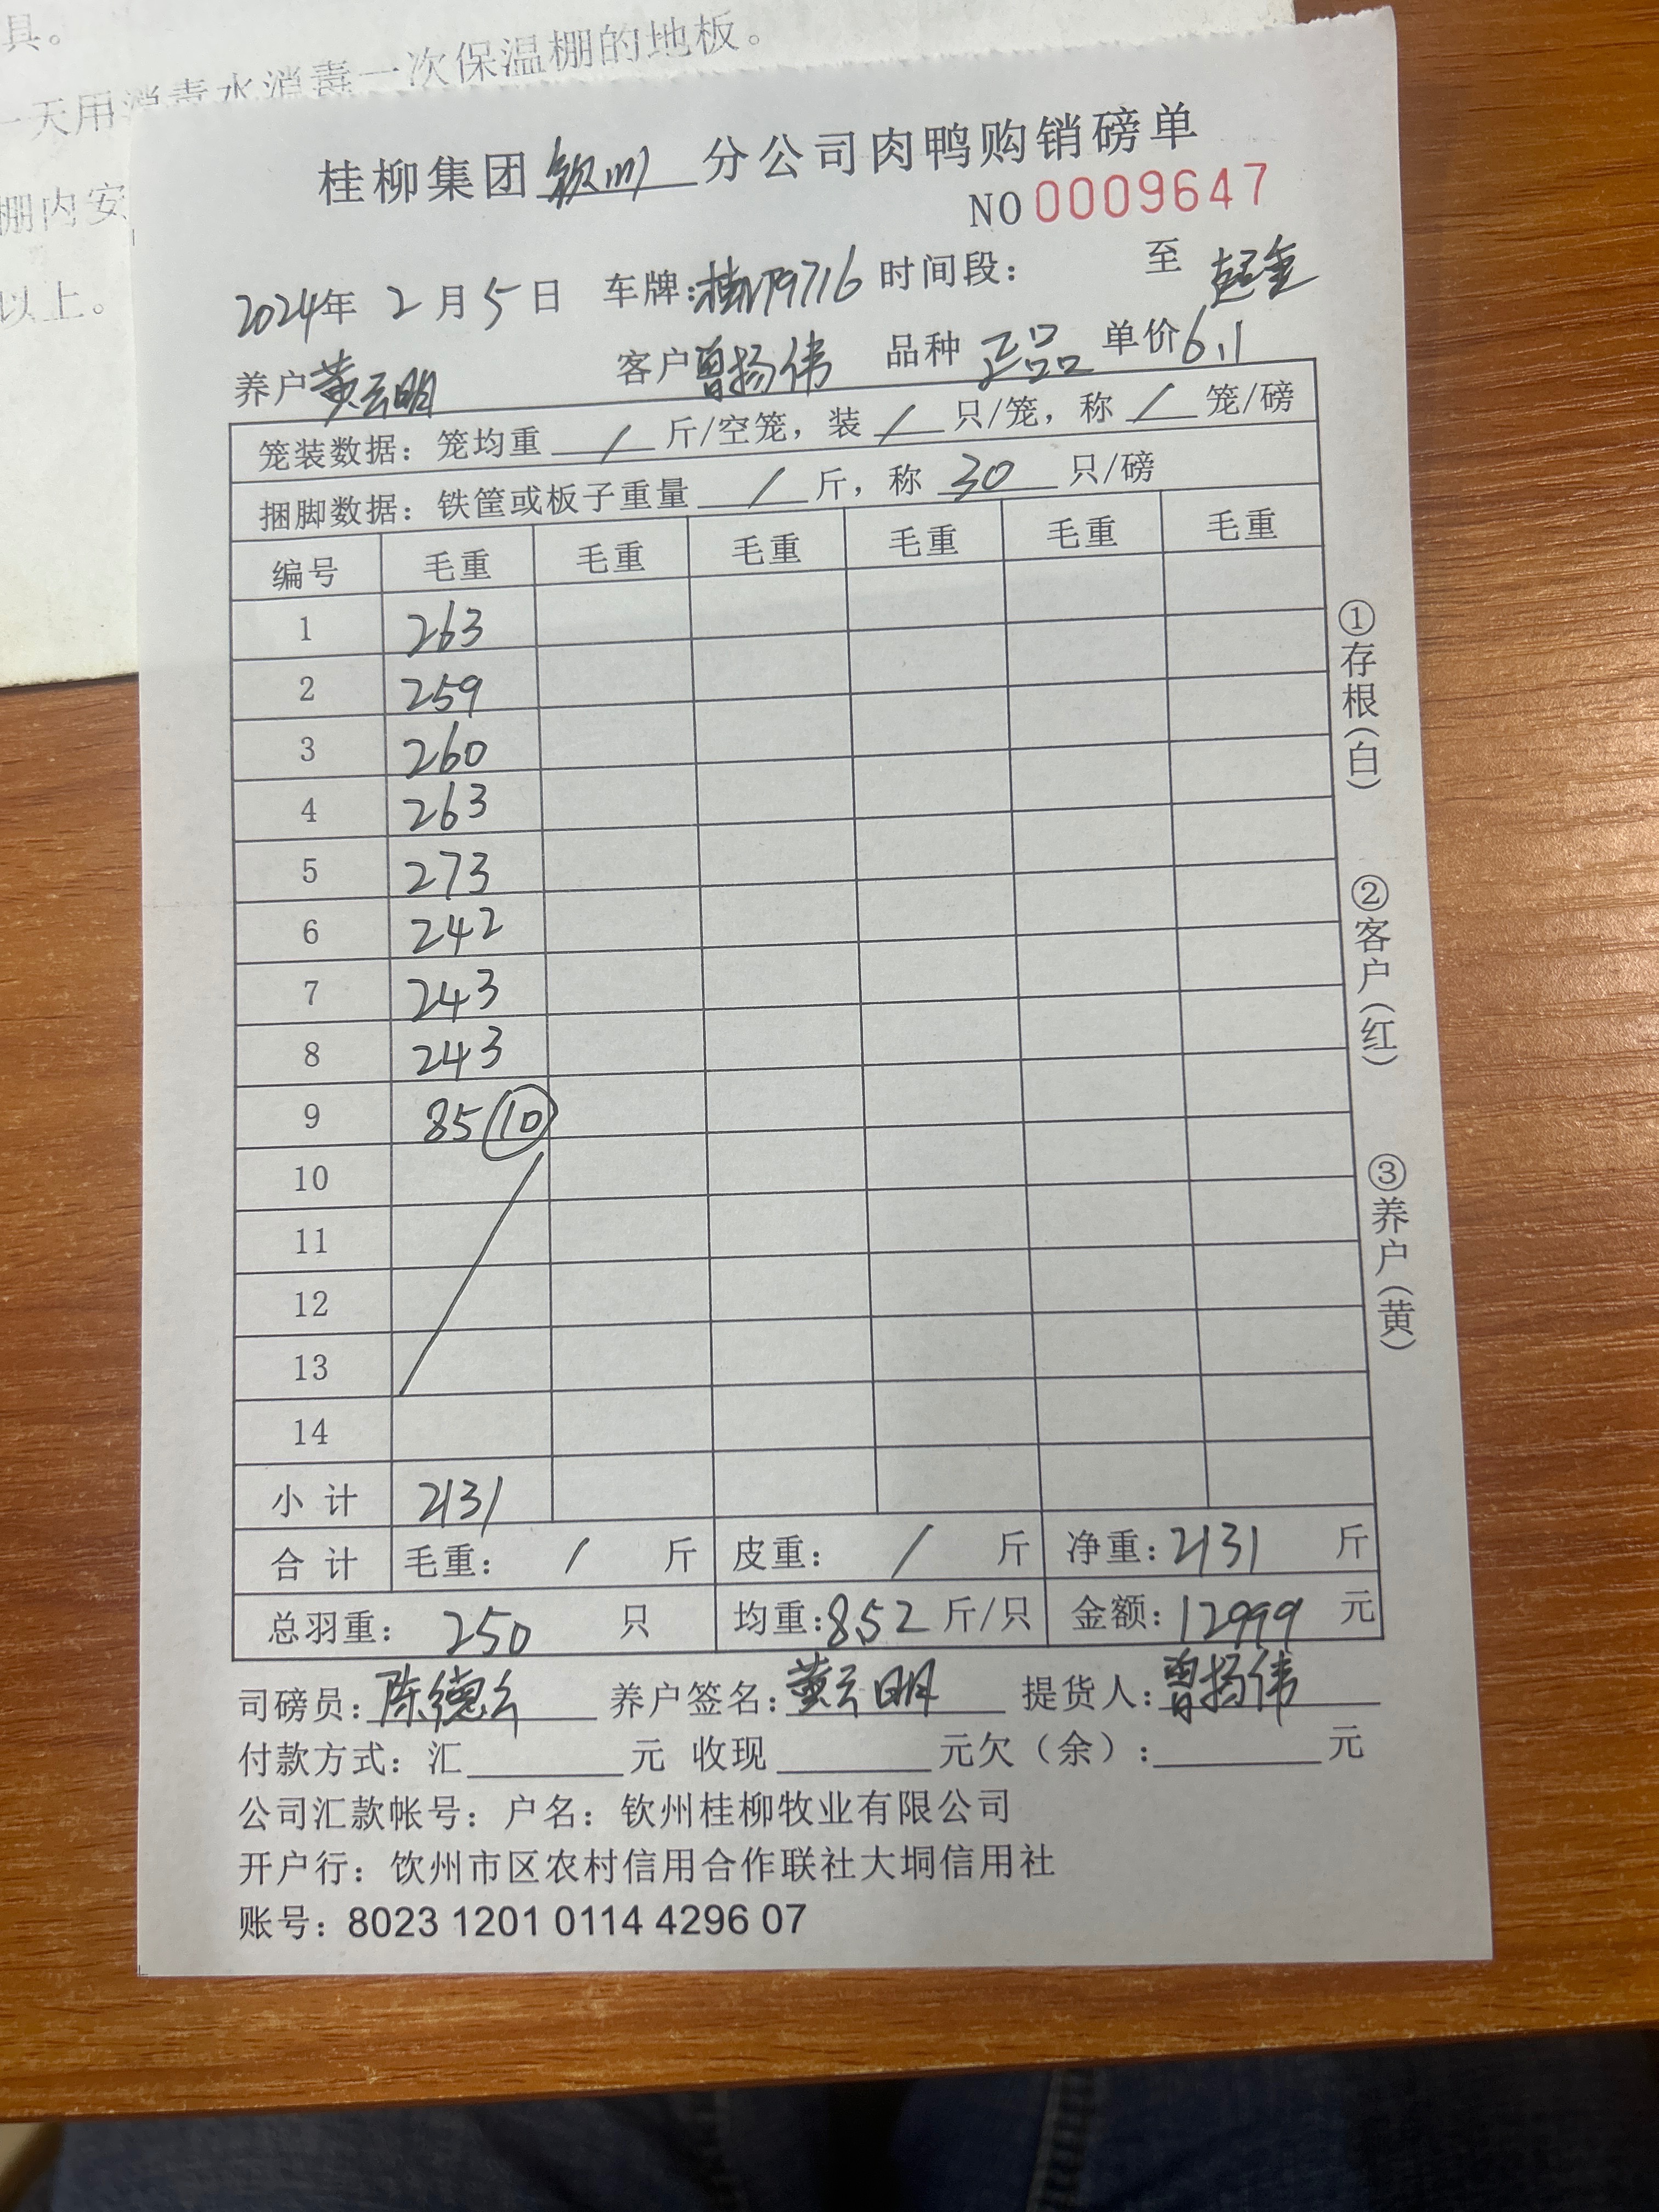 具。
一天用消毒水消毒一次保温棚的地板。
棚内安
以上。
桂柳集团 钦州 分公司肉鸭购销磅单
NO 0009647
2024年 2月5日 车牌: 时间段: 至
养户 黄云明 客户 曾扬伟 品种 正品 单价 6.1
笼装数据: 笼均重 / 斤/空笼, 装 / 只/笼, 称 / 笼/磅
捆脚数据: 铁筐或板子重量 / 斤, 称 30 只/磅
编号 毛重 毛重 毛重 毛重 毛重 毛重
1 263
2 259
3 260
4 263
5 273
6 242
7 243
8 243
9 85 ⑩
10
11
12
13
14
小计 2131
合计 毛重: / 斤 皮重: / 斤 净重: 2131 斤
总羽重: 250 只 均重: 8.52 斤/只 金额: 12999 元
司磅员: 陈德云 养户签名: 黄云明 提货人: 曾扬伟
付款方式: 汇 元 收现 元欠（余）: 元
公司汇款帐号: 户名: 钦州桂柳牧业有限公司
开户行: 钦州市区农村信用合作联社大垌信用社
账号: 8023 1201 0114 4296 07
①存根(白)
②客户(红)
③养户(黄)